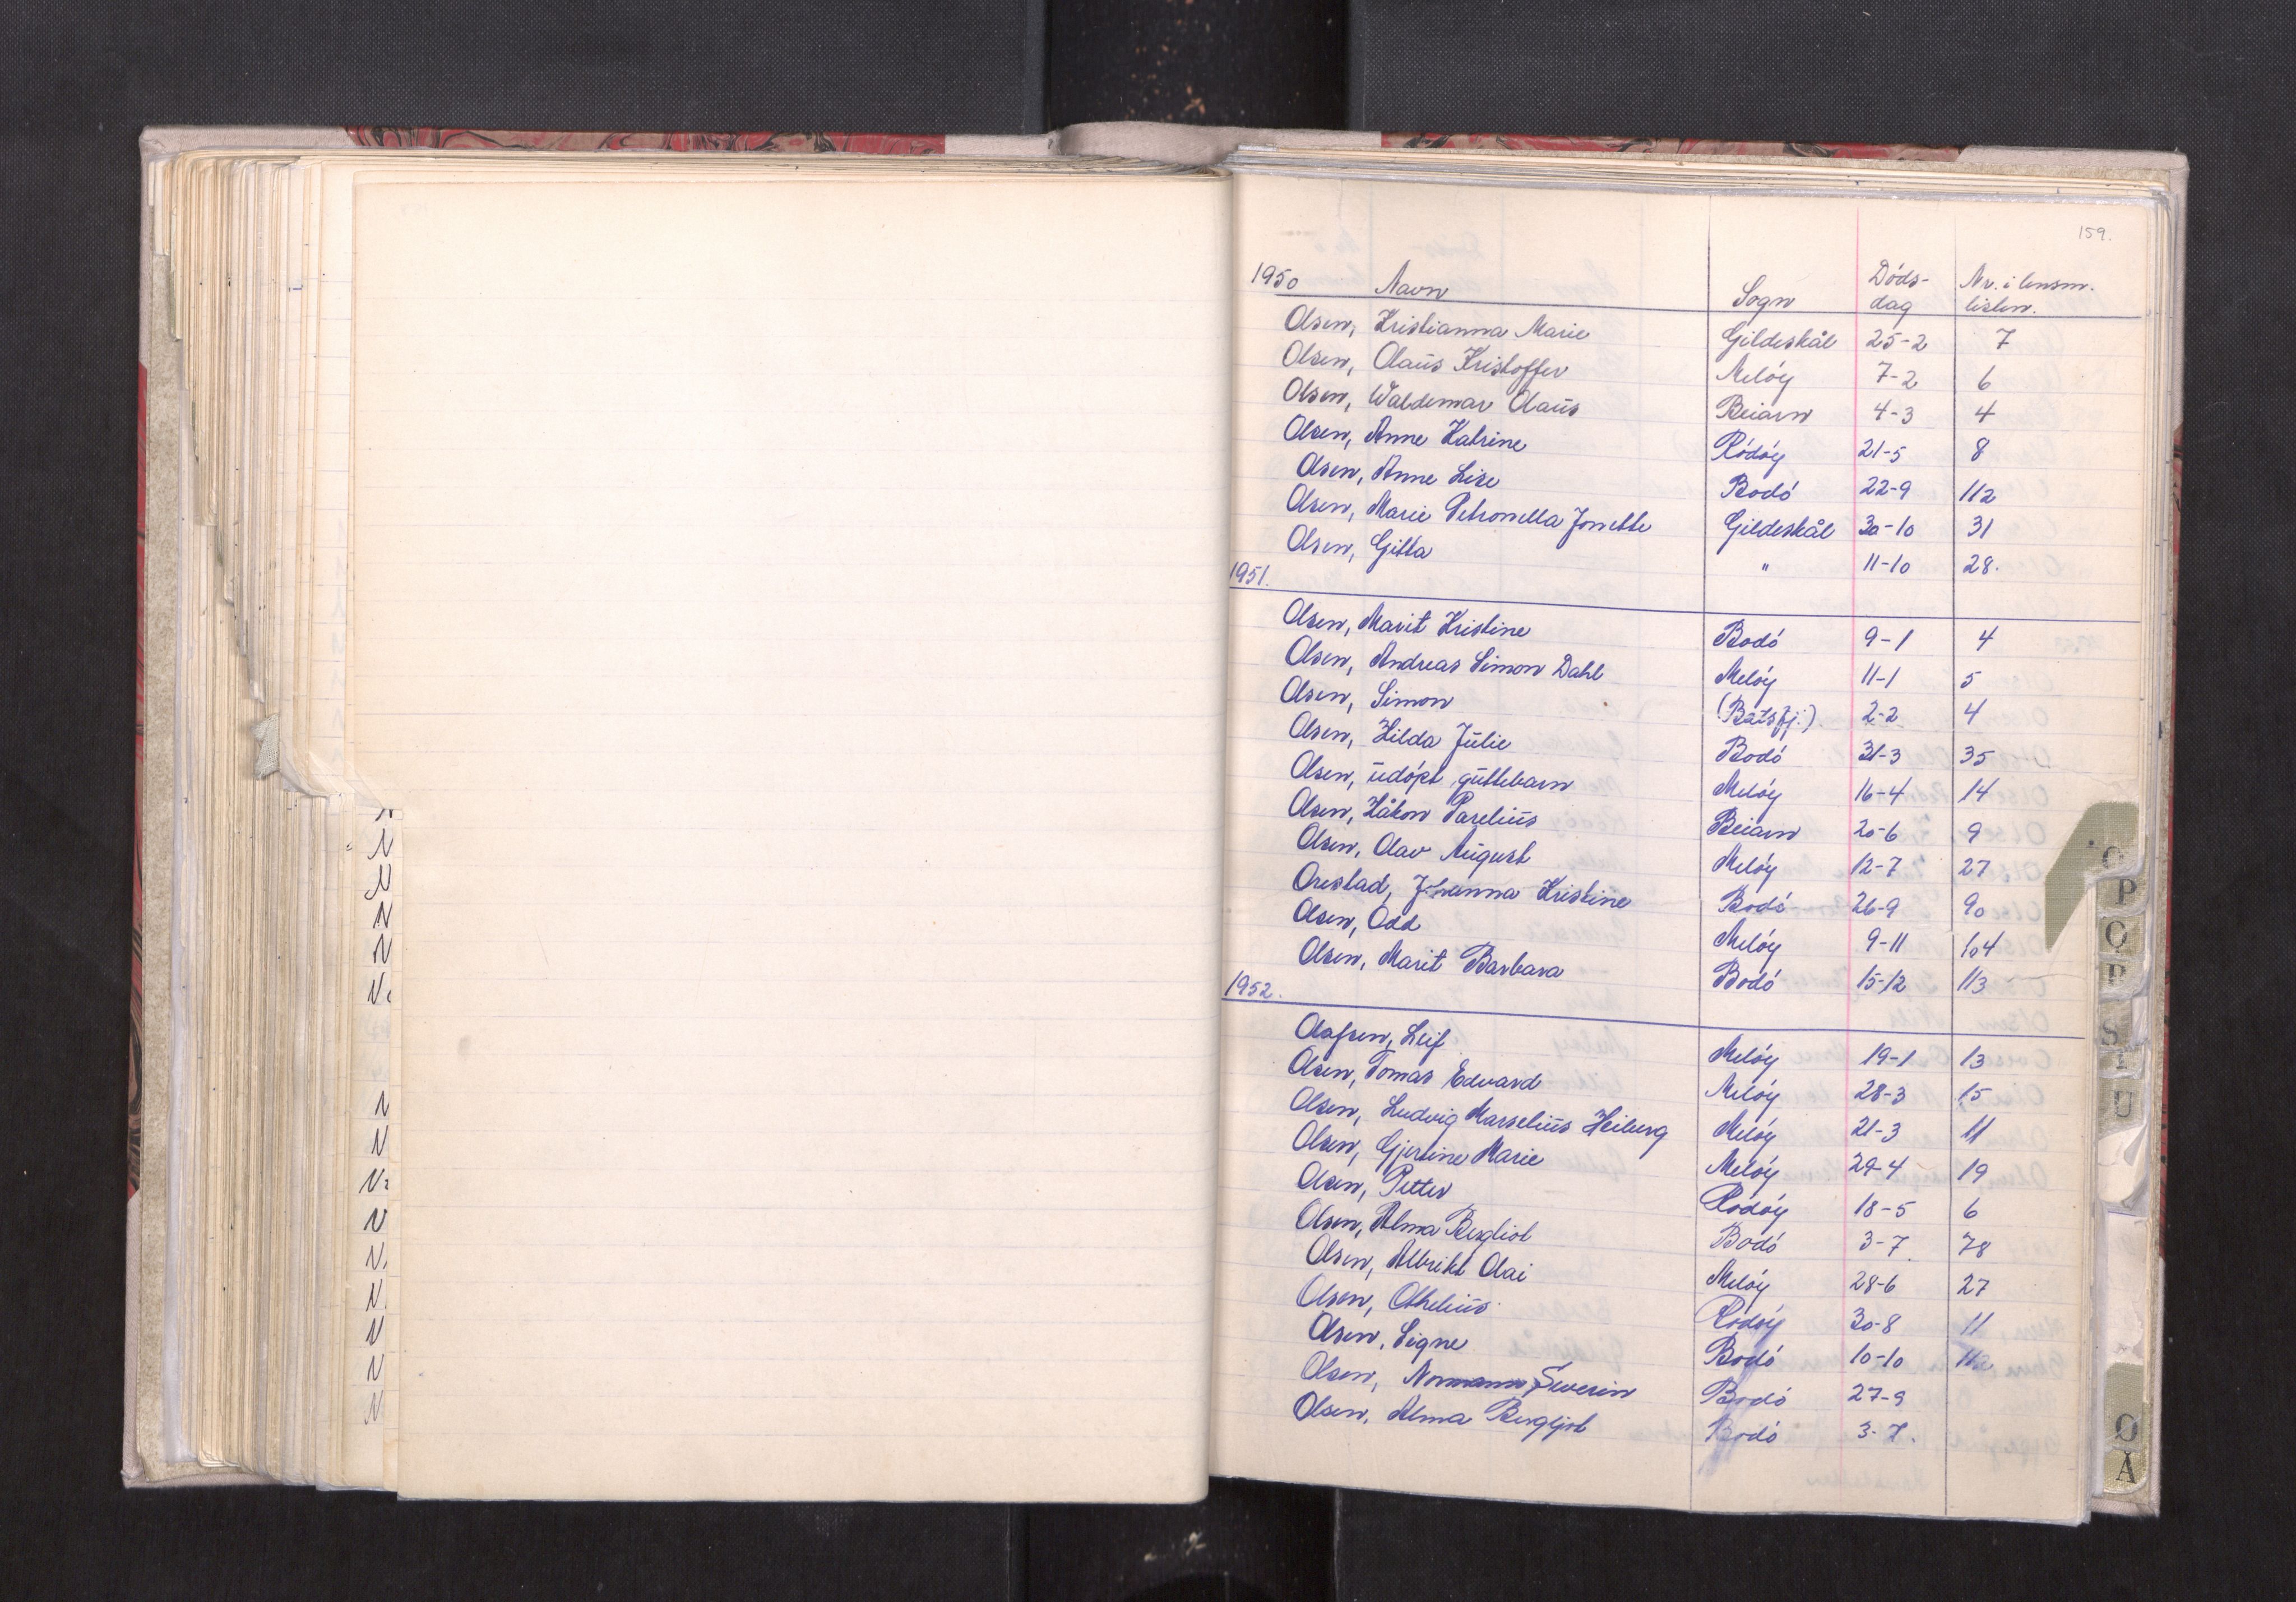 159.
1950 Navn Sogn Døds-dag Nr. i lensm. listen.
Olsen, Kristianna Marie Gildeskål 25-2 7
Olsen, Olaus Kristoffer Meløy 7-2 6
Olsen, Waldemar Olaus Beiarn 4-3 4
Olsen, Anne Katrine Rødøy 21-5 8
Olsen, Anne Lise Bodø 22-9 112
Olsen, Marie Petronella Jonette Gildeskål 30-10 31
Olsen, Gitta " 11-10 28.
1951.
Olsen, Marit Kristine Bodø 9-1 4
Olsen, Andreas Simon Dahl Meløy 11-1 5
Olsen, Simon (Båtsfj.) 2-2 4
Olsen, Hilda Julie Bodø 31-3 35
Olsen, udøpt guttebarn Meløy 16-4 14
Olsen, Håkon Parelius Beiarn 20-6 9
Olsen, Olav August Meløy 12-7 27
Orestad, Johanna Kristine Bodø 26-9 90
Olsen, Odd Meløy 9-11 104
Olsen, Marit Barbara Bodø 15-12 113
1952.
Olafsen, Leif Meløy 19-1 13
Olsen, Tomas Edvard Meløy 28-3 15
Olsen, Ludvig Marselius Heiberg Meløy 21-3 11
Olsen, Gjertine Marie Meløy 29-4 19
Olsen, Petter Rødøy 18-5 6
Olsen, Alma Bergliot Bodø 3-7. 78
Olsen, Albrikt Olai Meløy 28-6 27
Olsen, Othelius Rødøy 30-8 11
Olsen, Signe Bodø 10-10 112
Olsen, Normann Severin Bodø 27-9
Olsen, Alma Bergljot Bodø 3-7.